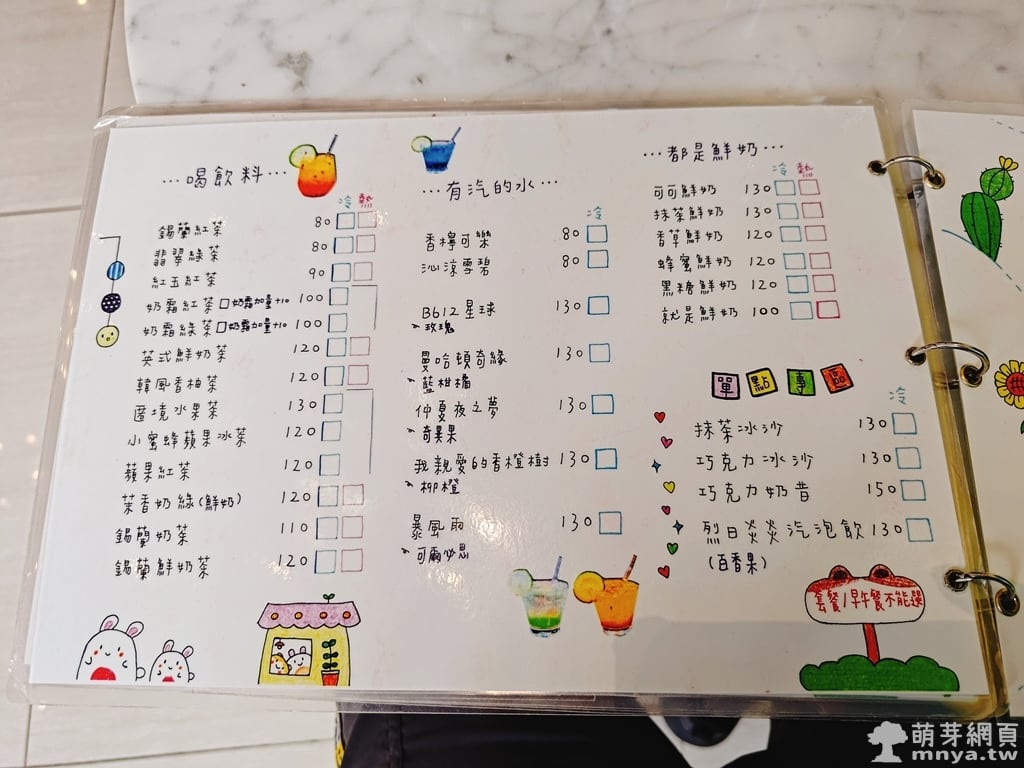 …喝飲料…
冷 熱
錫蘭紅茶 80
翡翠綠茶 80
紅玉紅茶 90
奶霜紅茶 奶霜加量+10 100
奶霜綠茶 奶霜加量+10 100
英式鮮奶茶 120
韓風香柚茶 120
匿境水果茶 130
小蜜蜂蘋果冰茶 120
蘋果紅茶 120
茉香奶綠(鮮奶) 120
錫蘭奶茶 110
錫蘭鮮奶茶 120
…有汽的水…
冷
香檸可樂 80
沁涼雪碧 80
B612星球 130
玫瑰
曼哈頓奇緣 130
藍柑橘
仲夏夜之夢 130
奇異果
我親愛的香橙樹 130
柳橙
暴風雨 130
可爾必思
…都是鮮奶…
冷 熱
可可鮮奶 130
抹茶鮮奶 130
香草鮮奶 120
蜂蜜鮮奶 120
黑糖鮮奶 120
就是鮮奶 100
單點專區
冷
抹茶冰沙 130
巧克力冰沙 130
巧克力奶昔 150
烈日炎炎汽泡飲 130
(百香果)
套餐/早午餐不能選
萌芽網頁
mnya.tw